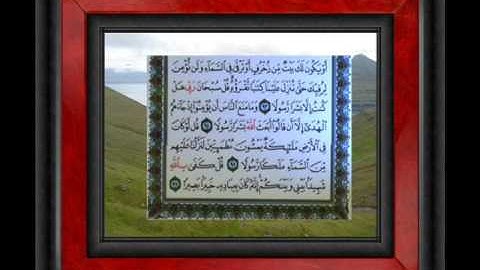 أَوْ يَكُونَ لَكَ بَيْتٌ مِن زُخْرُفٍ أَوْ تَرْقَىٰ فِي السَّمَاءِ وَلَن نُّؤْمِنَ
لِرُقِيِّكَ حَتَّىٰ تُنَزِّلَ عَلَيْنَا كِتَابًا نَّقْرَؤُهُ قُلْ سُبْحَانَ رَبِّي هَلْ
كُنتُ إِلَّا بَشَرًا رَّسُولًا ٩٣ وَمَا مَنَعَ النَّاسَ أَن يُؤْمِنُوا إِذْ جَاءَهُمُ
الْهُدَىٰ إِلَّا أَن قَالُوا أَبَعَثَ اللَّهُ بَشَرًا رَّسُولًا ٩٤ قُل لَّوْ كَانَ
فِي الْأَرْضِ مَلَائِكَةٌ يَمْشُونَ مُطْمَئِنِّينَ لَنَزَّلْنَا عَلَيْهِم
مِّنَ السَّمَاءِ مَلَكًا رَّسُولًا ٩٥ قُلْ كَفَىٰ بِاللَّهِ
شَهِيدًا بَيْنِي وَبَيْنَكُمْ إِنَّهُ كَانَ بِعِبَادِهِ خَبِيرًا بَصِيرًا ٩٦